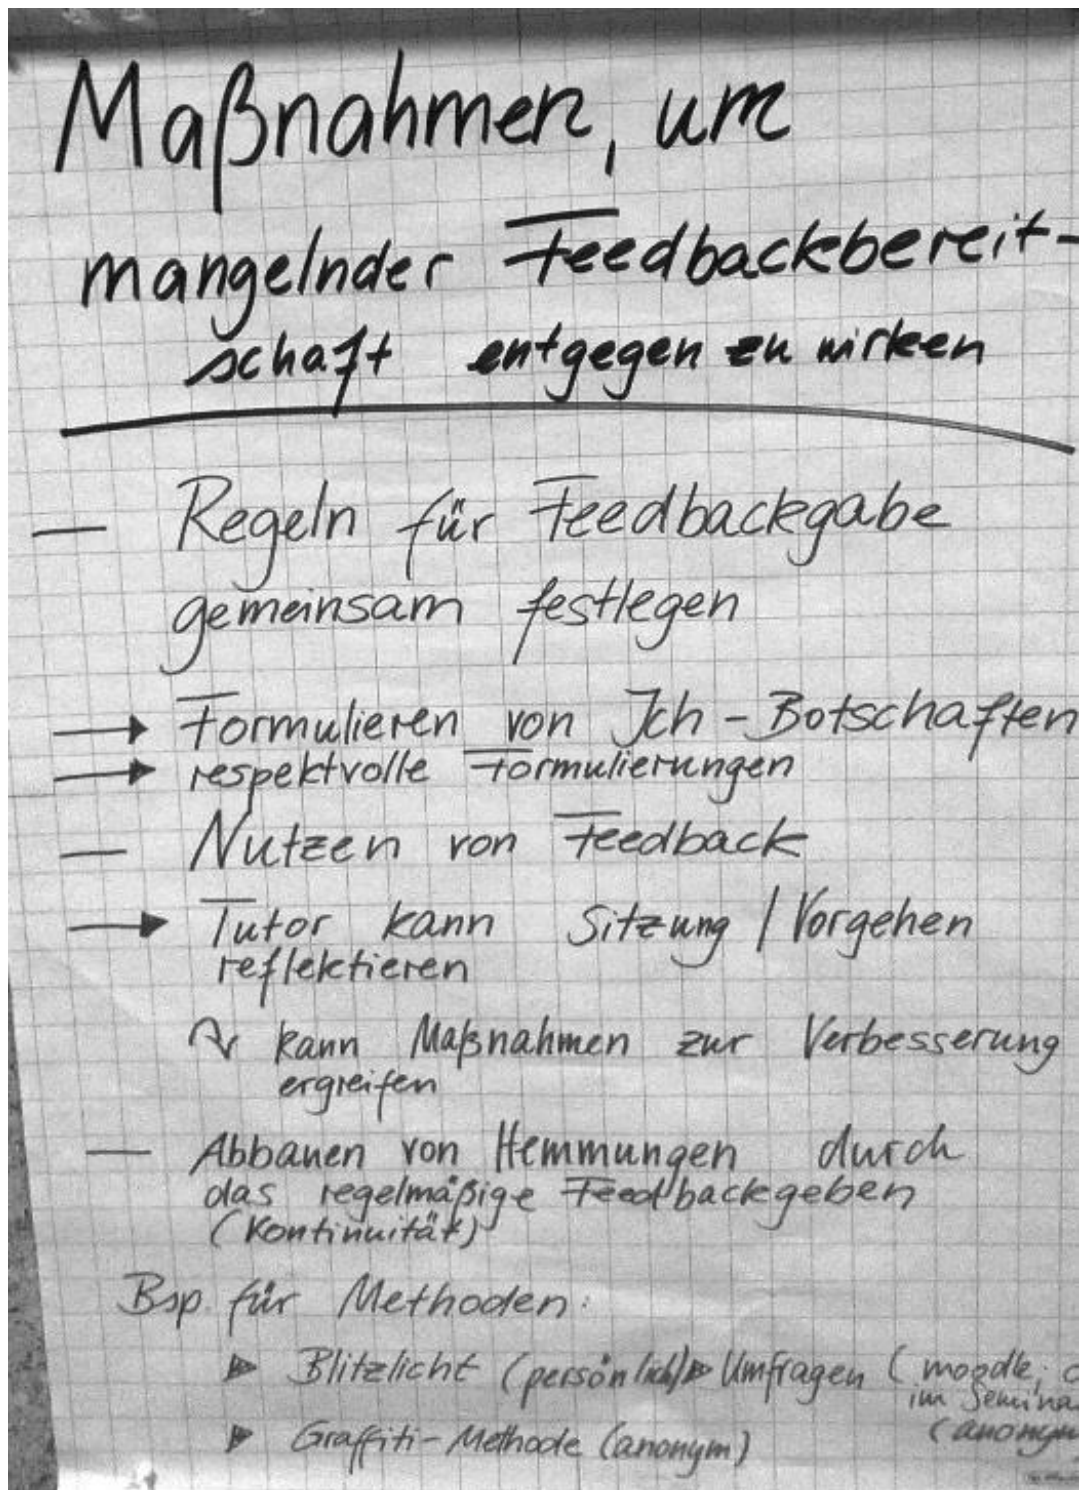 Maßnahmen, um
mangelnder Feedbackbereit-
schaft entgegen zu wirken
— Regeln für Feedbackgabe
gemeinsam festlegen
→ Formulieren von Ich-Botschaften
→ respektvolle Formulierungen
— Nutzen von Feedback
→ Tutor kann Sitzung / Vorgehen
reflektieren
kann Maßnahmen zur Verbesserung
ergreifen
— Abbauen von Hemmungen durch
das regelmäßige Feedbackgeben
(Kontinuität)
Bsp. für Methoden:
▶ Blitzlicht (persönlich) ▶ Umfragen (moodle,
im Semina
(anonym
▶ Graffiti-Methode (anonym)